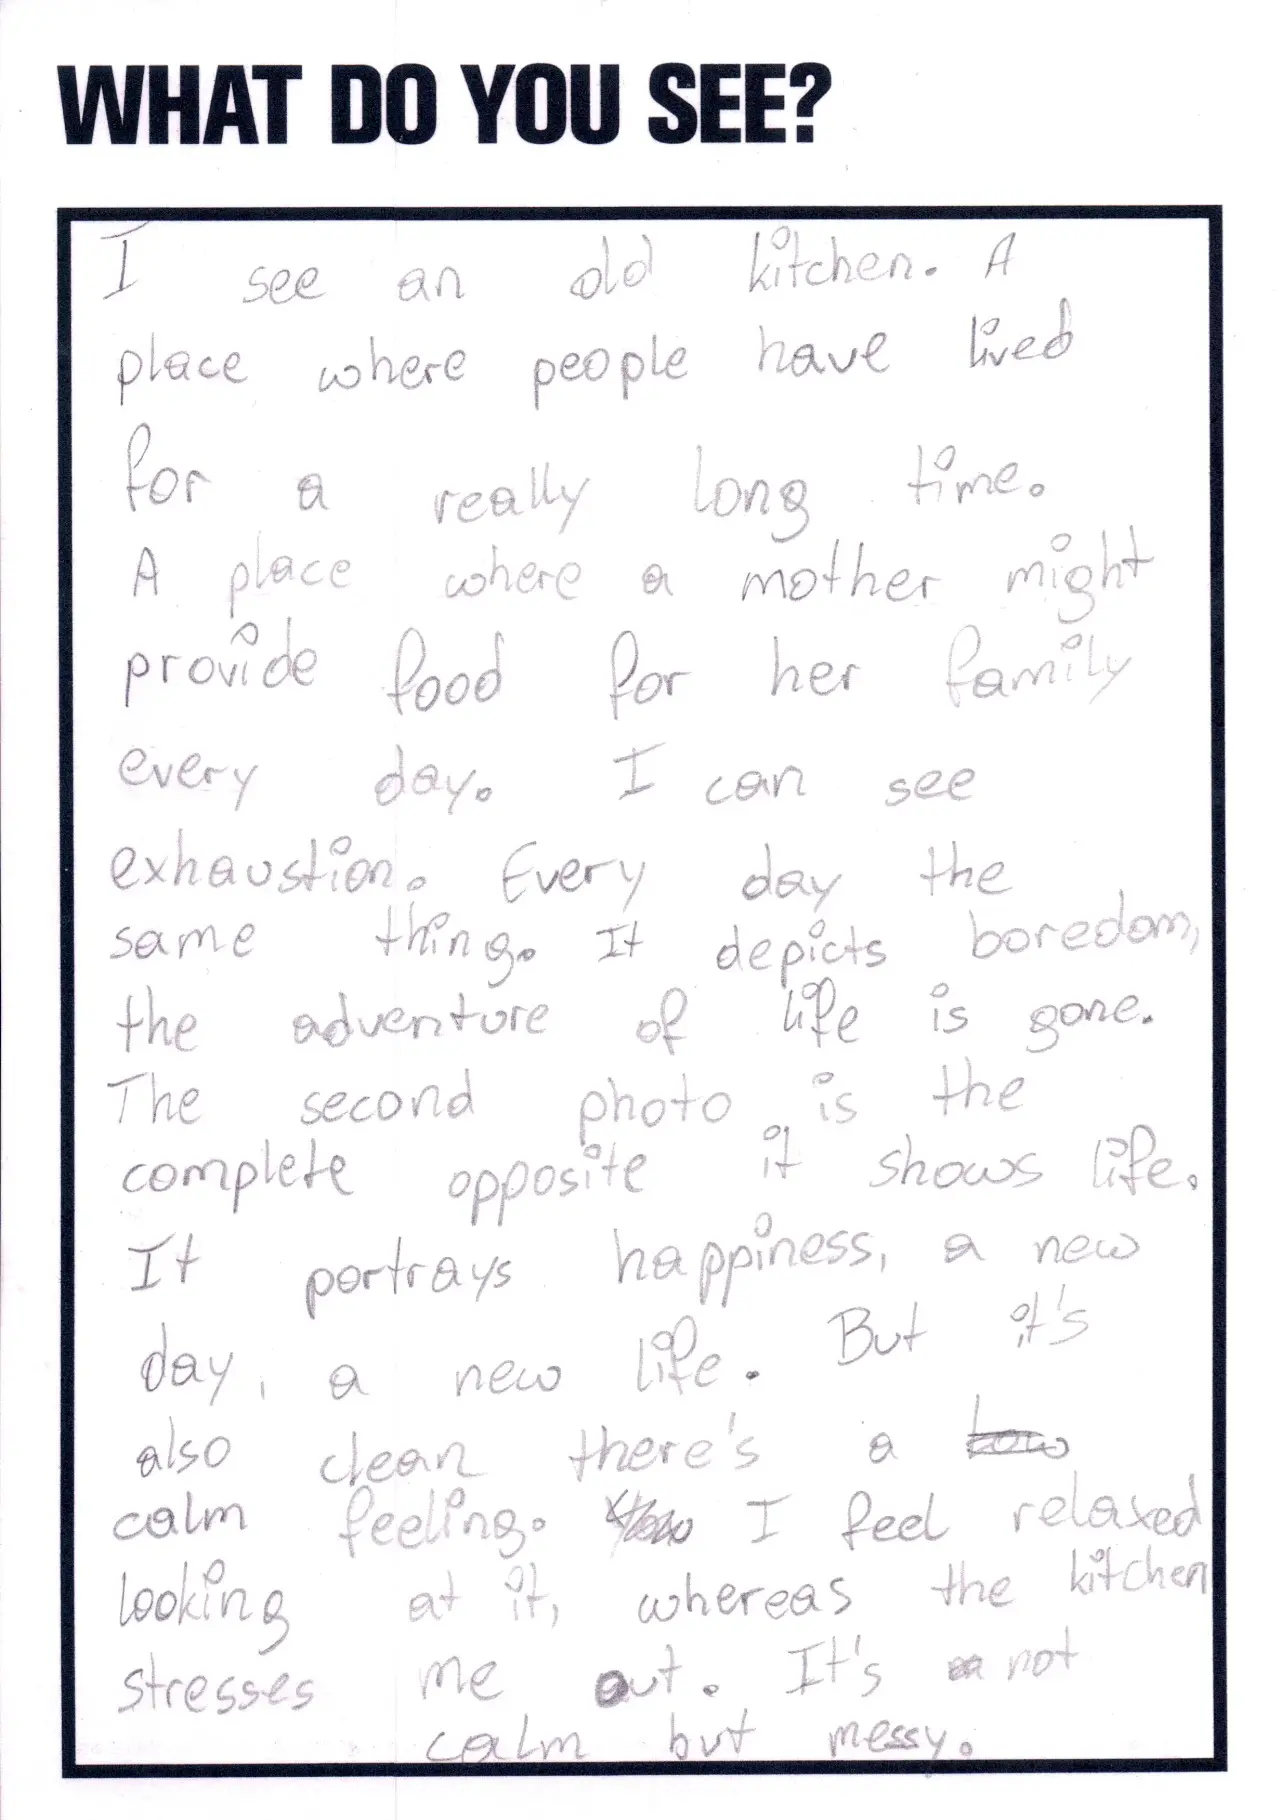 WHAT DO YOU SEE?
I see an old kitchen. A
place where people have lived
for a really long time.
A place where a mother might
provide food for her family
every day. I can see
exhaustion. Every day the
same thing. It depicts boredom,
the adventure of life is gone.
The second photo is the
complete opposite it shows life.
It portrays happiness, a new
day, a new life. But it's
also clean there's a
calm feeling. I feel relaxed
looking at it, whereas the kitchen
stresses me out. It's not
calm but messy.